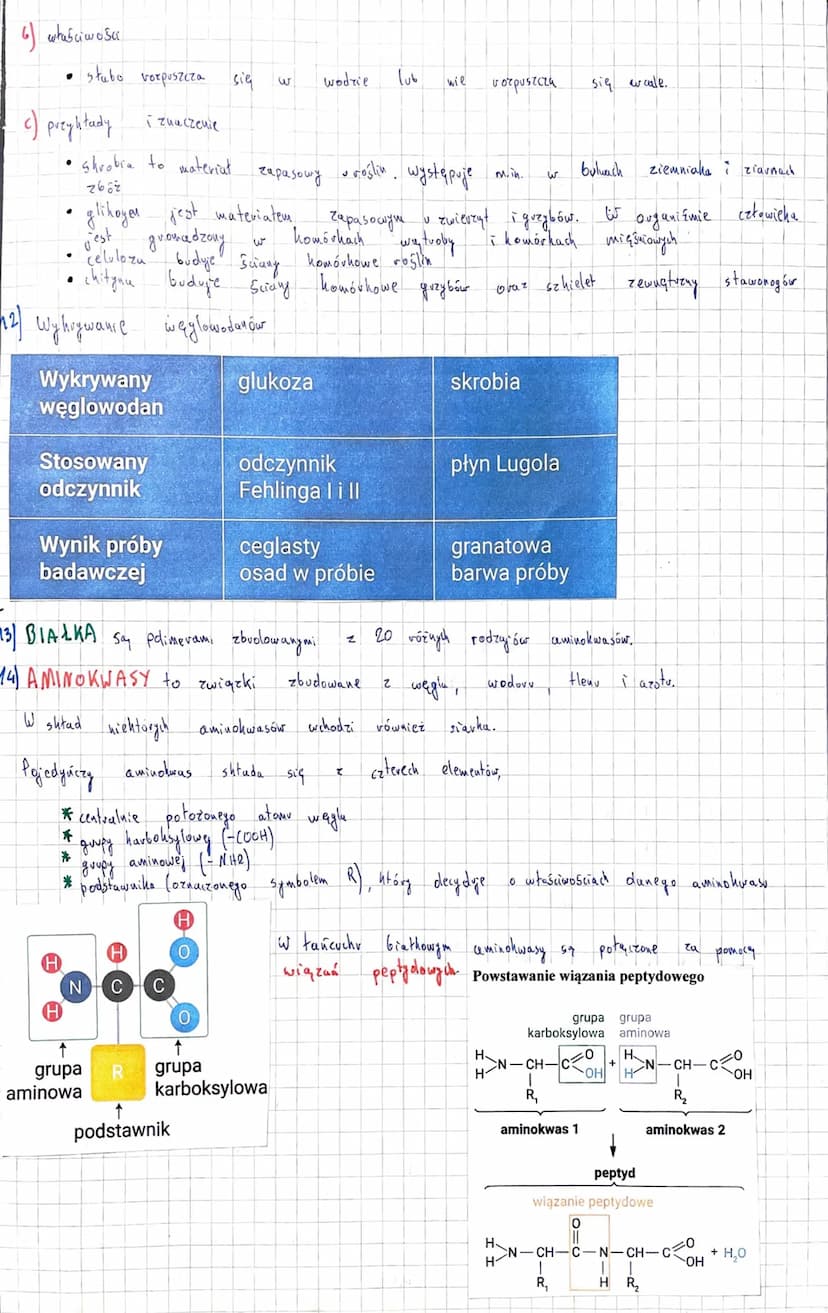 b) właściwości
• słabo rozpuszcza się w wodzie lub nie rozpuszcza się wcale.
c) przykłady i znaczenie
• skrobia to materiał zapasowy roślin. występuje m.in. w bulwach ziemniaka i ziarnach
zbóż
• glikogen jest materiałem zapasowym u zwierząt i grzybów. W organizmie człowieka
jest gromadzony w komórkach wątroby i komórkach mięśniowych
• celuloza buduje ściany komórkowe roślin
• chityna buduje ściany komórkowe grzybów oraz szkielet zewnętrzny stawonogów
12) Wykrywanie węglowodanów
Wykrywany węglowodan glukoza skrobia
Stosowany odczynnik odczynnik Fehlinga I i II płyn Lugola
Wynik próby badawczej ceglasty osad w próbie granatowa barwa próby
13) BIAŁKA są polimerami zbudowanymi z 20 różnych rodzajów aminokwasów.
14) AMINOKWASY to związki zbudowane z węgla, wodoru, tlenu i azotu.
W skład niektórych aminokwasów wchodzi również siarka.
Pojedyńczy aminokwas składa się z czterech elementów,
* centralnie położonego atomu węgla
* grupy karboksylowej (-COOH)
* grupy aminowej (-NH2)
* podstawnika (oznaczonego symbolem R), który decyduje o właściwościach danego aminokwasu
H
H H O
N C C
H O
R
grupa aminowa
grupa karboksylowa
podstawnik
W łańcuchu białkowym aminokwasy są połączone za pomocą
wiązań peptydowych.
Powstawanie wiązania peptydowego
grupa karboksylowa grupa aminowa
H H N — CH — C O OH + H H N — CH — C O OH
R₁ R₂
aminokwas 1 aminokwas 2
peptyd
wiązanie peptydowe
O
H H N — CH — C — N — CH — C O OH + H₂O
R₁ H R₂